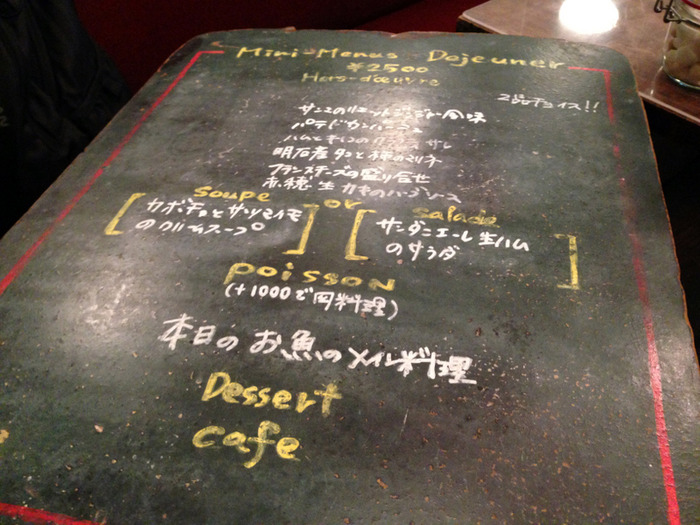 Mini-Menus Dejeuner
¥2500
Hors-d'œuvre
2品チョイス!!
サンマのリエット 風味
パテドカンパーニュ
ハムときのこの
明石産タコと のマリネ
フランスチーズの盛り合せ
赤穂生カキのハーブソース
soupe or salade
[カボチャとサツマイモ
のクリームスープ]
[サンダニエール生ハム
のサラダ]
poisson
(+1000で肉料理)
本日のお魚のメイン料理
Dessert
cafe